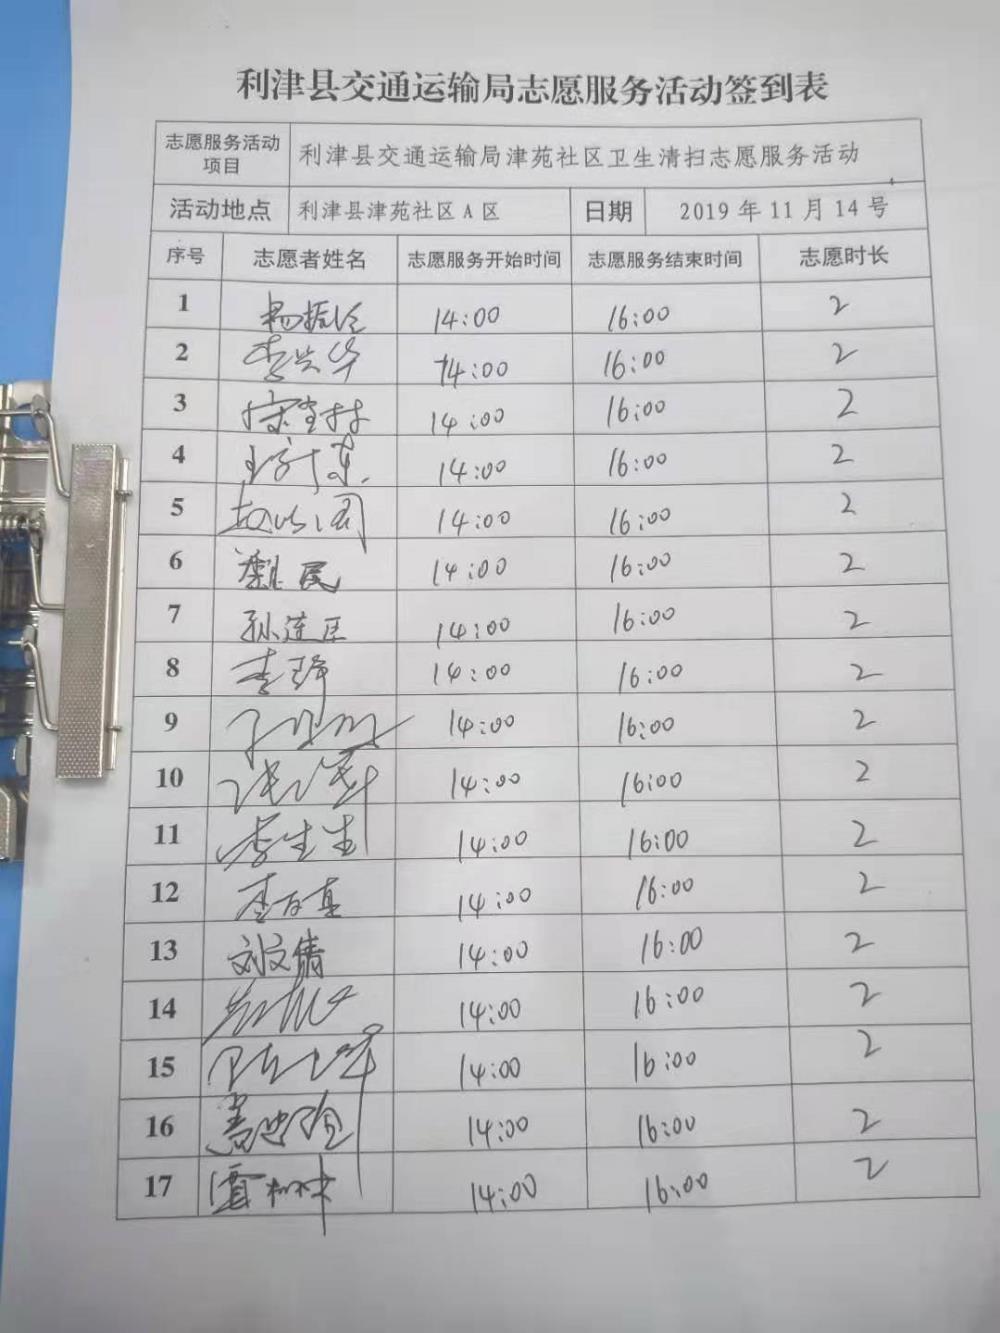 利津县交通运输局志愿服务活动签到表
志愿服务活动项目 利津县交通运输局津苑社区卫生清扫志愿服务活动
活动地点 利津县津苑社区A区 日期 2019年11月14号
序号 志愿者姓名 志愿服务开始时间 志愿服务结束时间 志愿时长
1 14:00 16:00 2
2 李兴华 14:00 16:00 2
3 14:00 16:00 2
4 14:00 16:00 2
5 14:00 16:00 2
6 14:00 16:00 2
7 孙连臣 14:00 16:00 2
8 李静 14:00 16:00 2
9 14:00 16:00 2
10 14:00 16:00 2
11 李生生 14:00 16:00 2
12 14:00 16:00 2
13 刘文倩 14:00 16:00 2
14 14:00 16:00 2
15 14:00 16:00 2
16 14:00 16:00 2
17 14:00 16:00 2